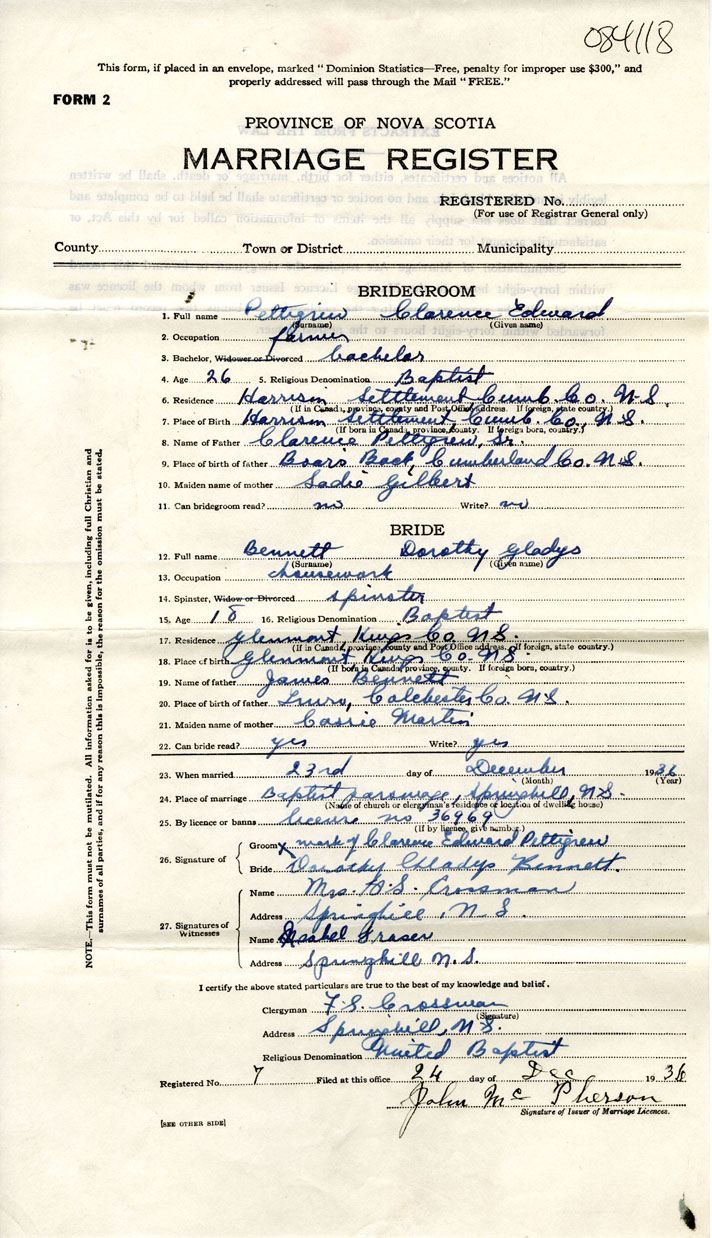 084118
This form, if placed in an envelope, marked “Dominion Statistics—Free, penalty for improper use $300,” and
properly addressed will pass through the Mail “FREE.”
FORM 2
PROVINCE OF NOVA SCOTIA
MARRIAGE REGISTER
REGISTERED No.
(For use of Registrar General only)
County Town or District Municipality
BRIDEGROOM
1. Full name Pettigrew Clarence Edward
(Surname) (Given name)
2. Occupation farmer
3. Bachelor, Widower or Divorced bachelor
4. Age 26 5. Religious Denomination Baptist
6. Residence Harrison Settlement Cumb. Co. N.S.
(If in Canada, province, county and Post Office address. If foreign, state country.)
7. Place of Birth Harrison Settlement, Cumb. Co., N.S.
(If born in Canada, province, county. If foreign born, country.)
8. Name of Father Clarence Pettigrew, Sr.
9. Place of birth of father Boars Back, Cumberland Co. N.S.
10. Maiden name of mother Sadie Gilbert
11. Can bridegroom read? no Write? no
BRIDE
12. Full name Bennett Dorothy Gladys
(Surname) (Given name)
13. Occupation housework
14. Spinster, Widow or Divorced spinster
15. Age 18 16. Religious Denomination Baptist
17. Residence Glenmont, Kings Co N.S.
(If in Canada, province, county and Post Office address. If foreign, state country.)
18. Place of birth Glenmont Kings Co. N.S.
(If born in Canada, province, county. If foreign born, country.)
19. Name of father James Bennett
20. Place of birth of father Truro, Colchester Co. N.S.
21. Maiden name of mother Cassie Martin
22. Can bride read? yes Write? yes
23. When married 23rd day of December 1936
(Month) (Year)
24. Place of marriage Baptist parsonage, Springhill, N.S.
(Name of church or clergyman's residence or location of dwelling house)
25. By licence or banns license no 36969
(If by licence, give number.)
26. Signature of Groom X mark of Clarence Edward Pettigrew
Bride Dorothy Gladys Bennett.
27. Signatures of Witnesses
Name Mrs. F.S. Crossman
Address Springhill, N.S.
Name Isabel Fraser
Address Springhill N.S.
I certify the above stated particulars are true to the best of my knowledge and belief.
Clergyman F. S. Crossman
(Signature)
Address Springhill, N.S.
Religious Denomination United Baptist
Registered No. 7 Filed at this office 24 day of Dec 1936
John McPherson
Signature of Issuer of Marriage Licences.
[SEE OTHER SIDE]
NOTE.—This form must not be mutilated. All information asked for is to be given, including full Christian and
surnames of all parties, and if for any reason this is impossible, the reason for the omission must be stated.